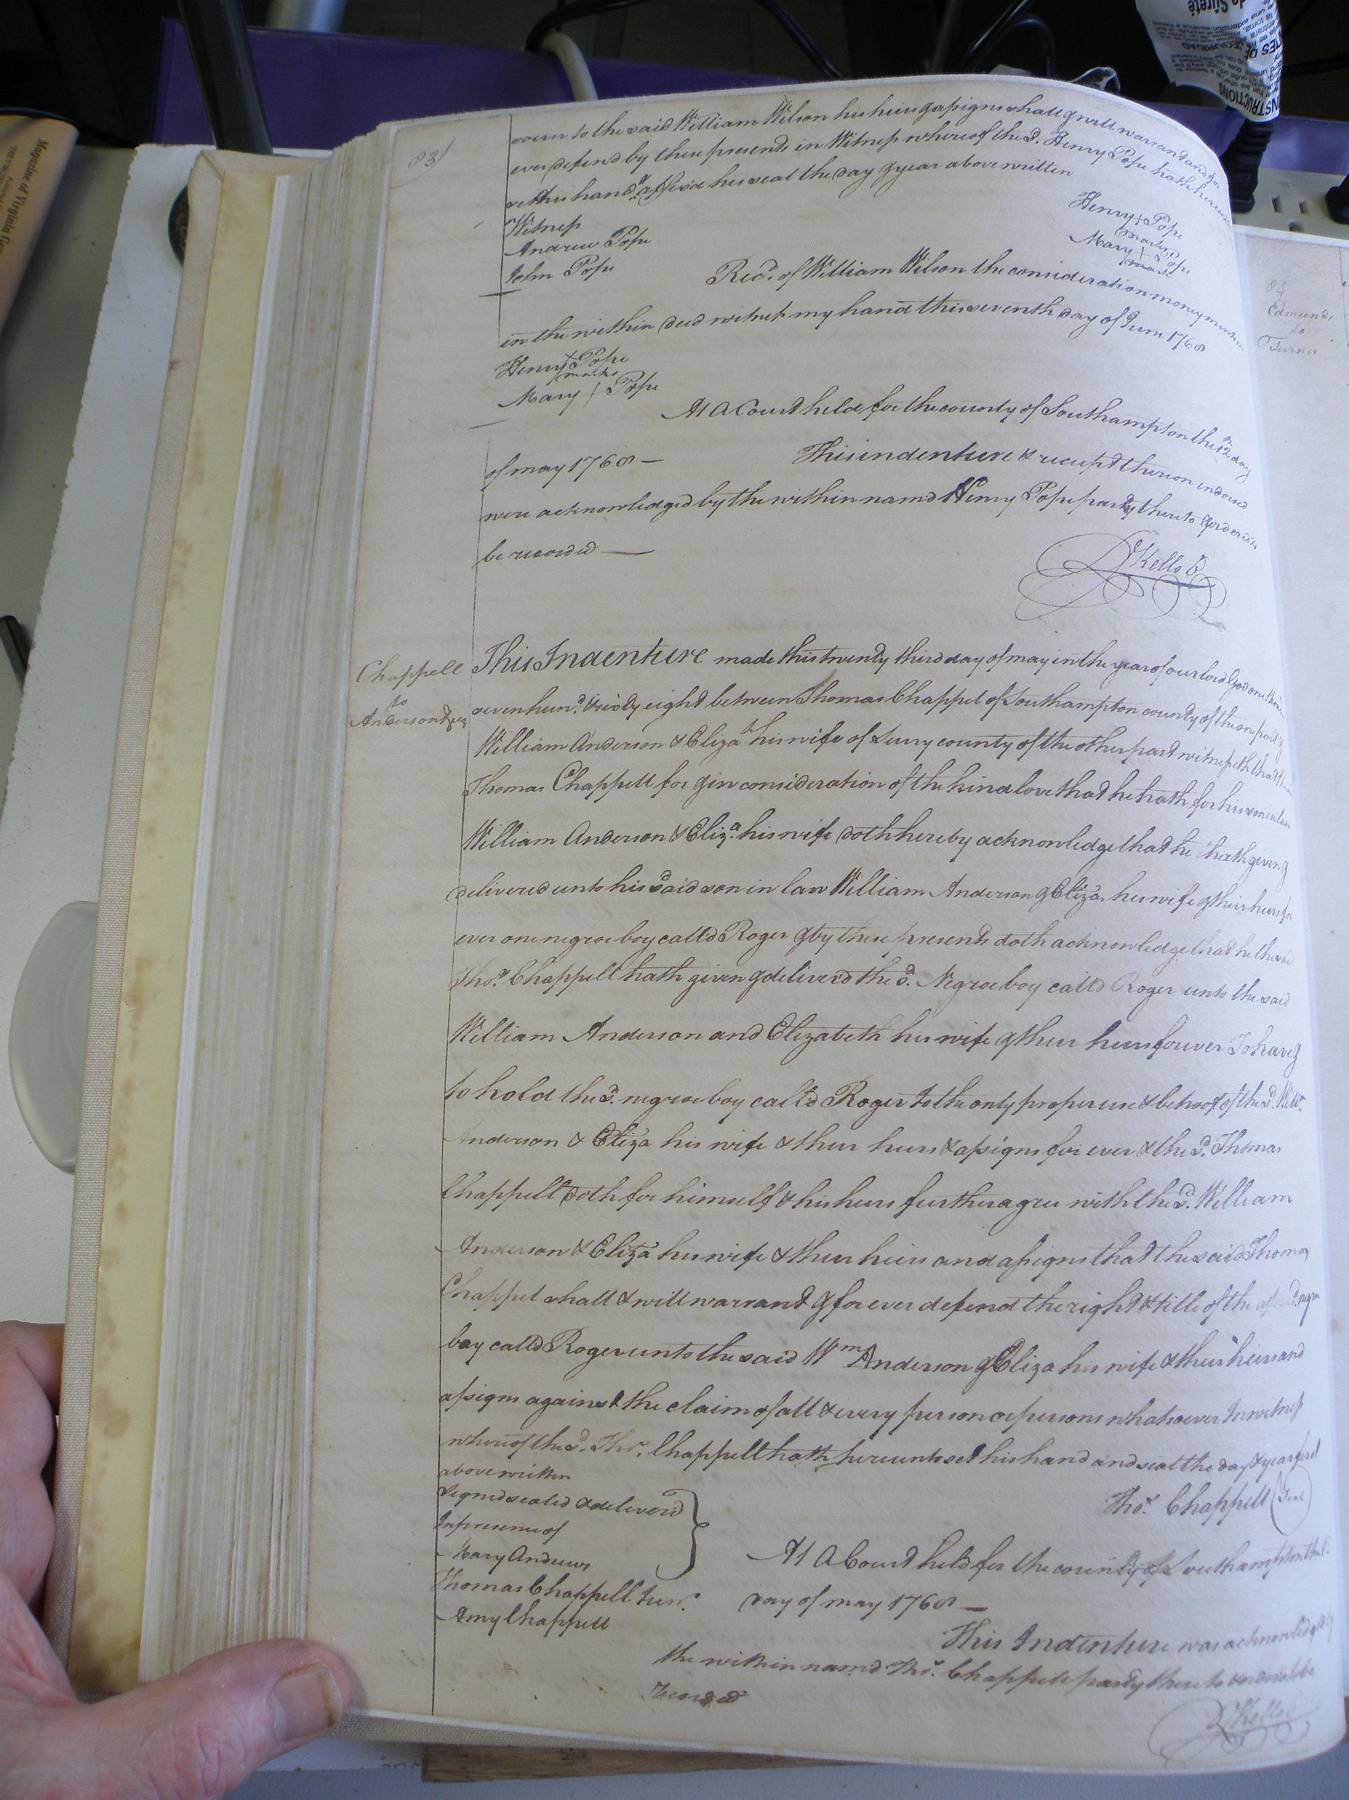 83
over to the said William Wilson his heirs & assigns shall & will warrant and for
ever defend by these presents in Witness whereof the sd. Henry Pope hath hereunto
set his hand & affixd his seal the day & year above written
Witness
Andrew Pope
John Pope
Henry + Pope
marks
Mary + Pope
mark
Recd. of William Wilson the consideration money
in the within deed witness my hand this seventh day of June 1768
Henry + Pope
marks
Mary + Pope
At a Court held for the county of Southampton the 12 day
of may 1768 —
This indenture & receipt thereon endorsed
were acknowledged by the within namd Henry Pope party thereto & orderd to
be recorded —
Kello
Chappell
to
Anderson & ux
This Indenture made this twenty third day of may in the year of our lord God one
seven hund. & sixty eight between Thomas Chappel of Southampton county of the one part &
William Anderson & Eliza. his wife of Surry county of the other part witnesseth that
Thomas Chappell for & in consideration of the kind love that he hath for his son in law
William Anderson & Eliza. his wife doth hereby acknowledge that he hath given &
delivered unto his said son in law William Anderson & Eliza. his wife & their heirs for
ever one negroe boy calld Roger & by these presents doth acknowledge that he the said
Thos. Chappell hath given & deliverd the sd. Negroe boy calld Roger unto the said
William Anderson and Elizabeth his wife & their heirs forever To have &
to hold the sd. negroe boy calld Roger to the only proper use & behoof of the sd. Willm.
Anderson & Eliza his wife & their heirs & assigns for ever & the sd. Thomas
Chappell doth for himself & his heirs further agree with the sd. William
Anderson & Eliza his wife & their heirs and assigns that the said Thomas
Chappel shall & will warrant & forever defend the right & title of the aforesd. negroe
boy calld Roger unto the said Wm. Anderson & Eliza his wife & their heirs and
assigns against the claim of all & every person or persons whatsoever In witness
whereof the sd. Thos. Chappell hath hereunto set his hand and seal the day & year first
above written
Signed sealed & deliverd
In presence of
Mary Andrews
Thomas Chappell Junr.
Amy Chappell
Thos. Chappell (Seal)
At a Court held for the county of Southampton the
day of may 1768 —
This Indenture was acknowledgd by
the within namd Thos. Chappell party thereto & orderd to be
Recorded
Kello
84
Edmunds
to
Turner
Magazine of Virginia
INSTRUCTIONS
de Sûreté